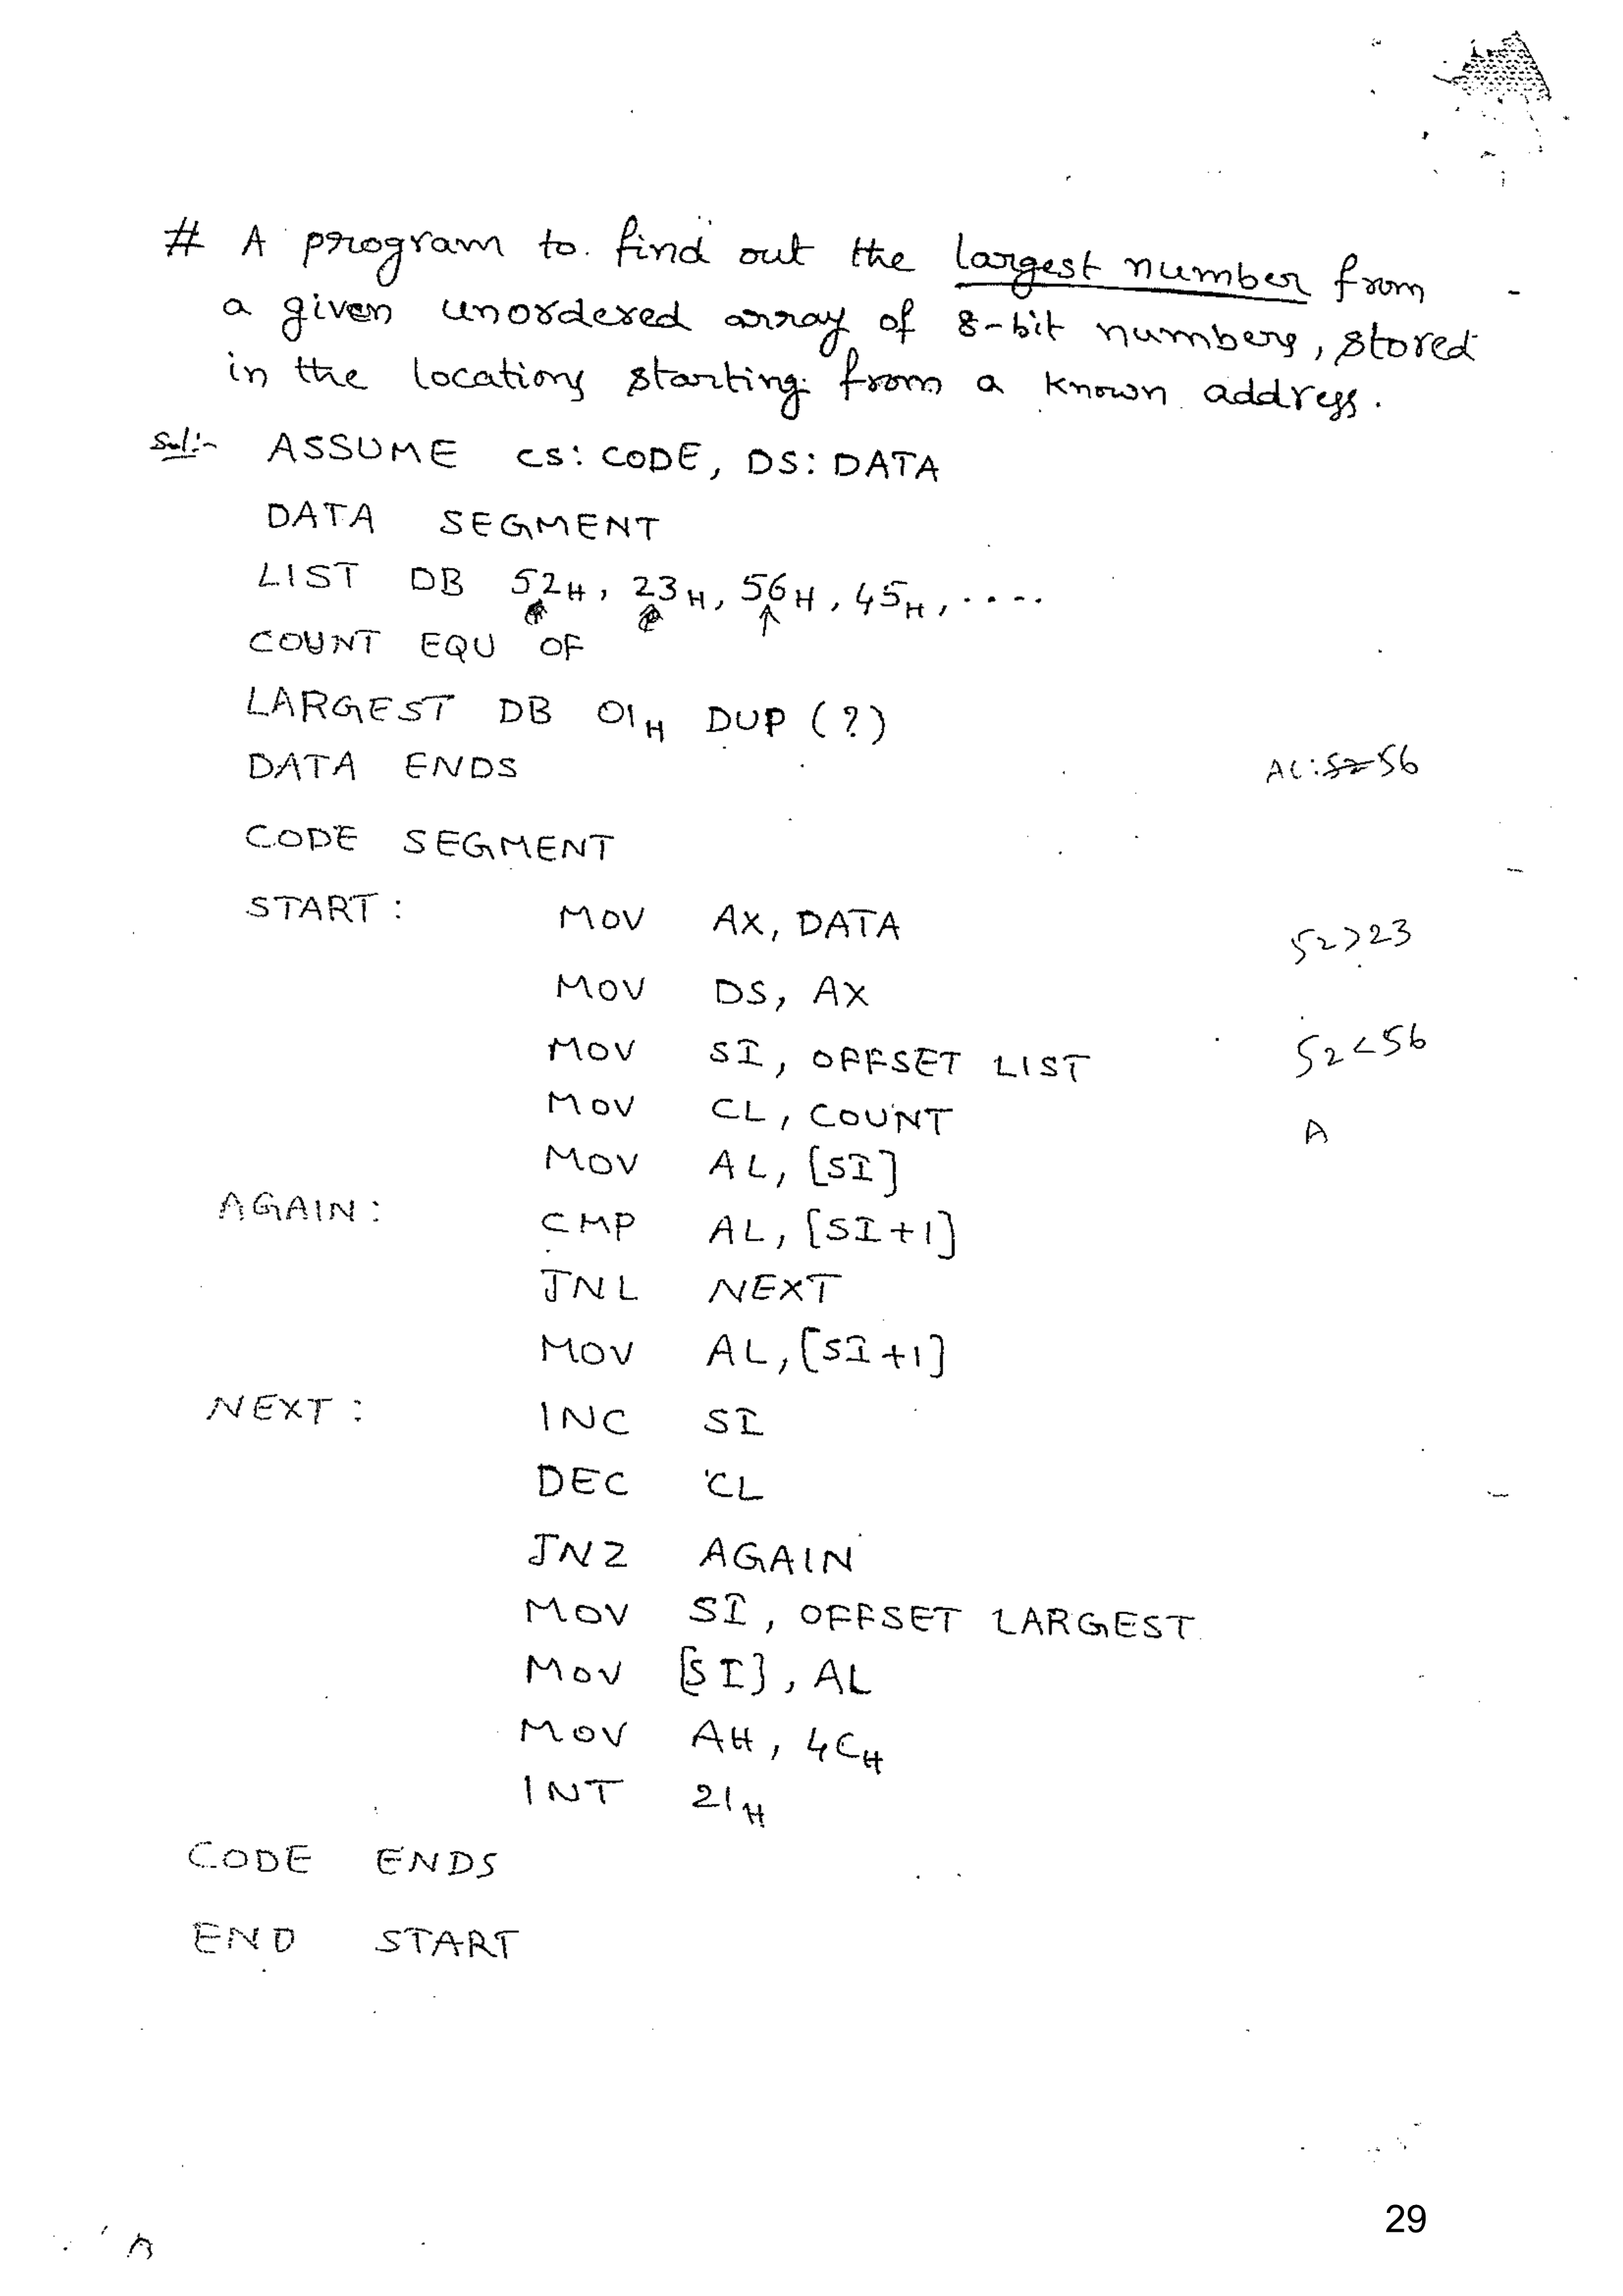 # A program to find out the largest number from
a given unordered array of 8-bit numbers, stored
in the locations starting from a known address.
Sol:- ASSUME CS: CODE, DS: DATA
DATA SEGMENT
LIST DB 52H, 23H, 56H, 45H, ....
COUNT EQU OF
LARGEST DB 01H DUP (?)
DATA ENDS
AL: 52 56
CODE SEGMENT
START: MOV AX, DATA
52>23
MOV DS, AX
MOV SI, OFFSET LIST
52<56
MOV CL, COUNT
A
MOV AL, [SI]
AGAIN: CMP AL, [SI+1]
JNL NEXT
MOV AL, [SI+1]
NEXT: INC SI
DEC CL
JNZ AGAIN
MOV SI, OFFSET LARGEST
MOV [SI], AL
MOV AH, 4CH
INT 21H
CODE ENDS
END START
29